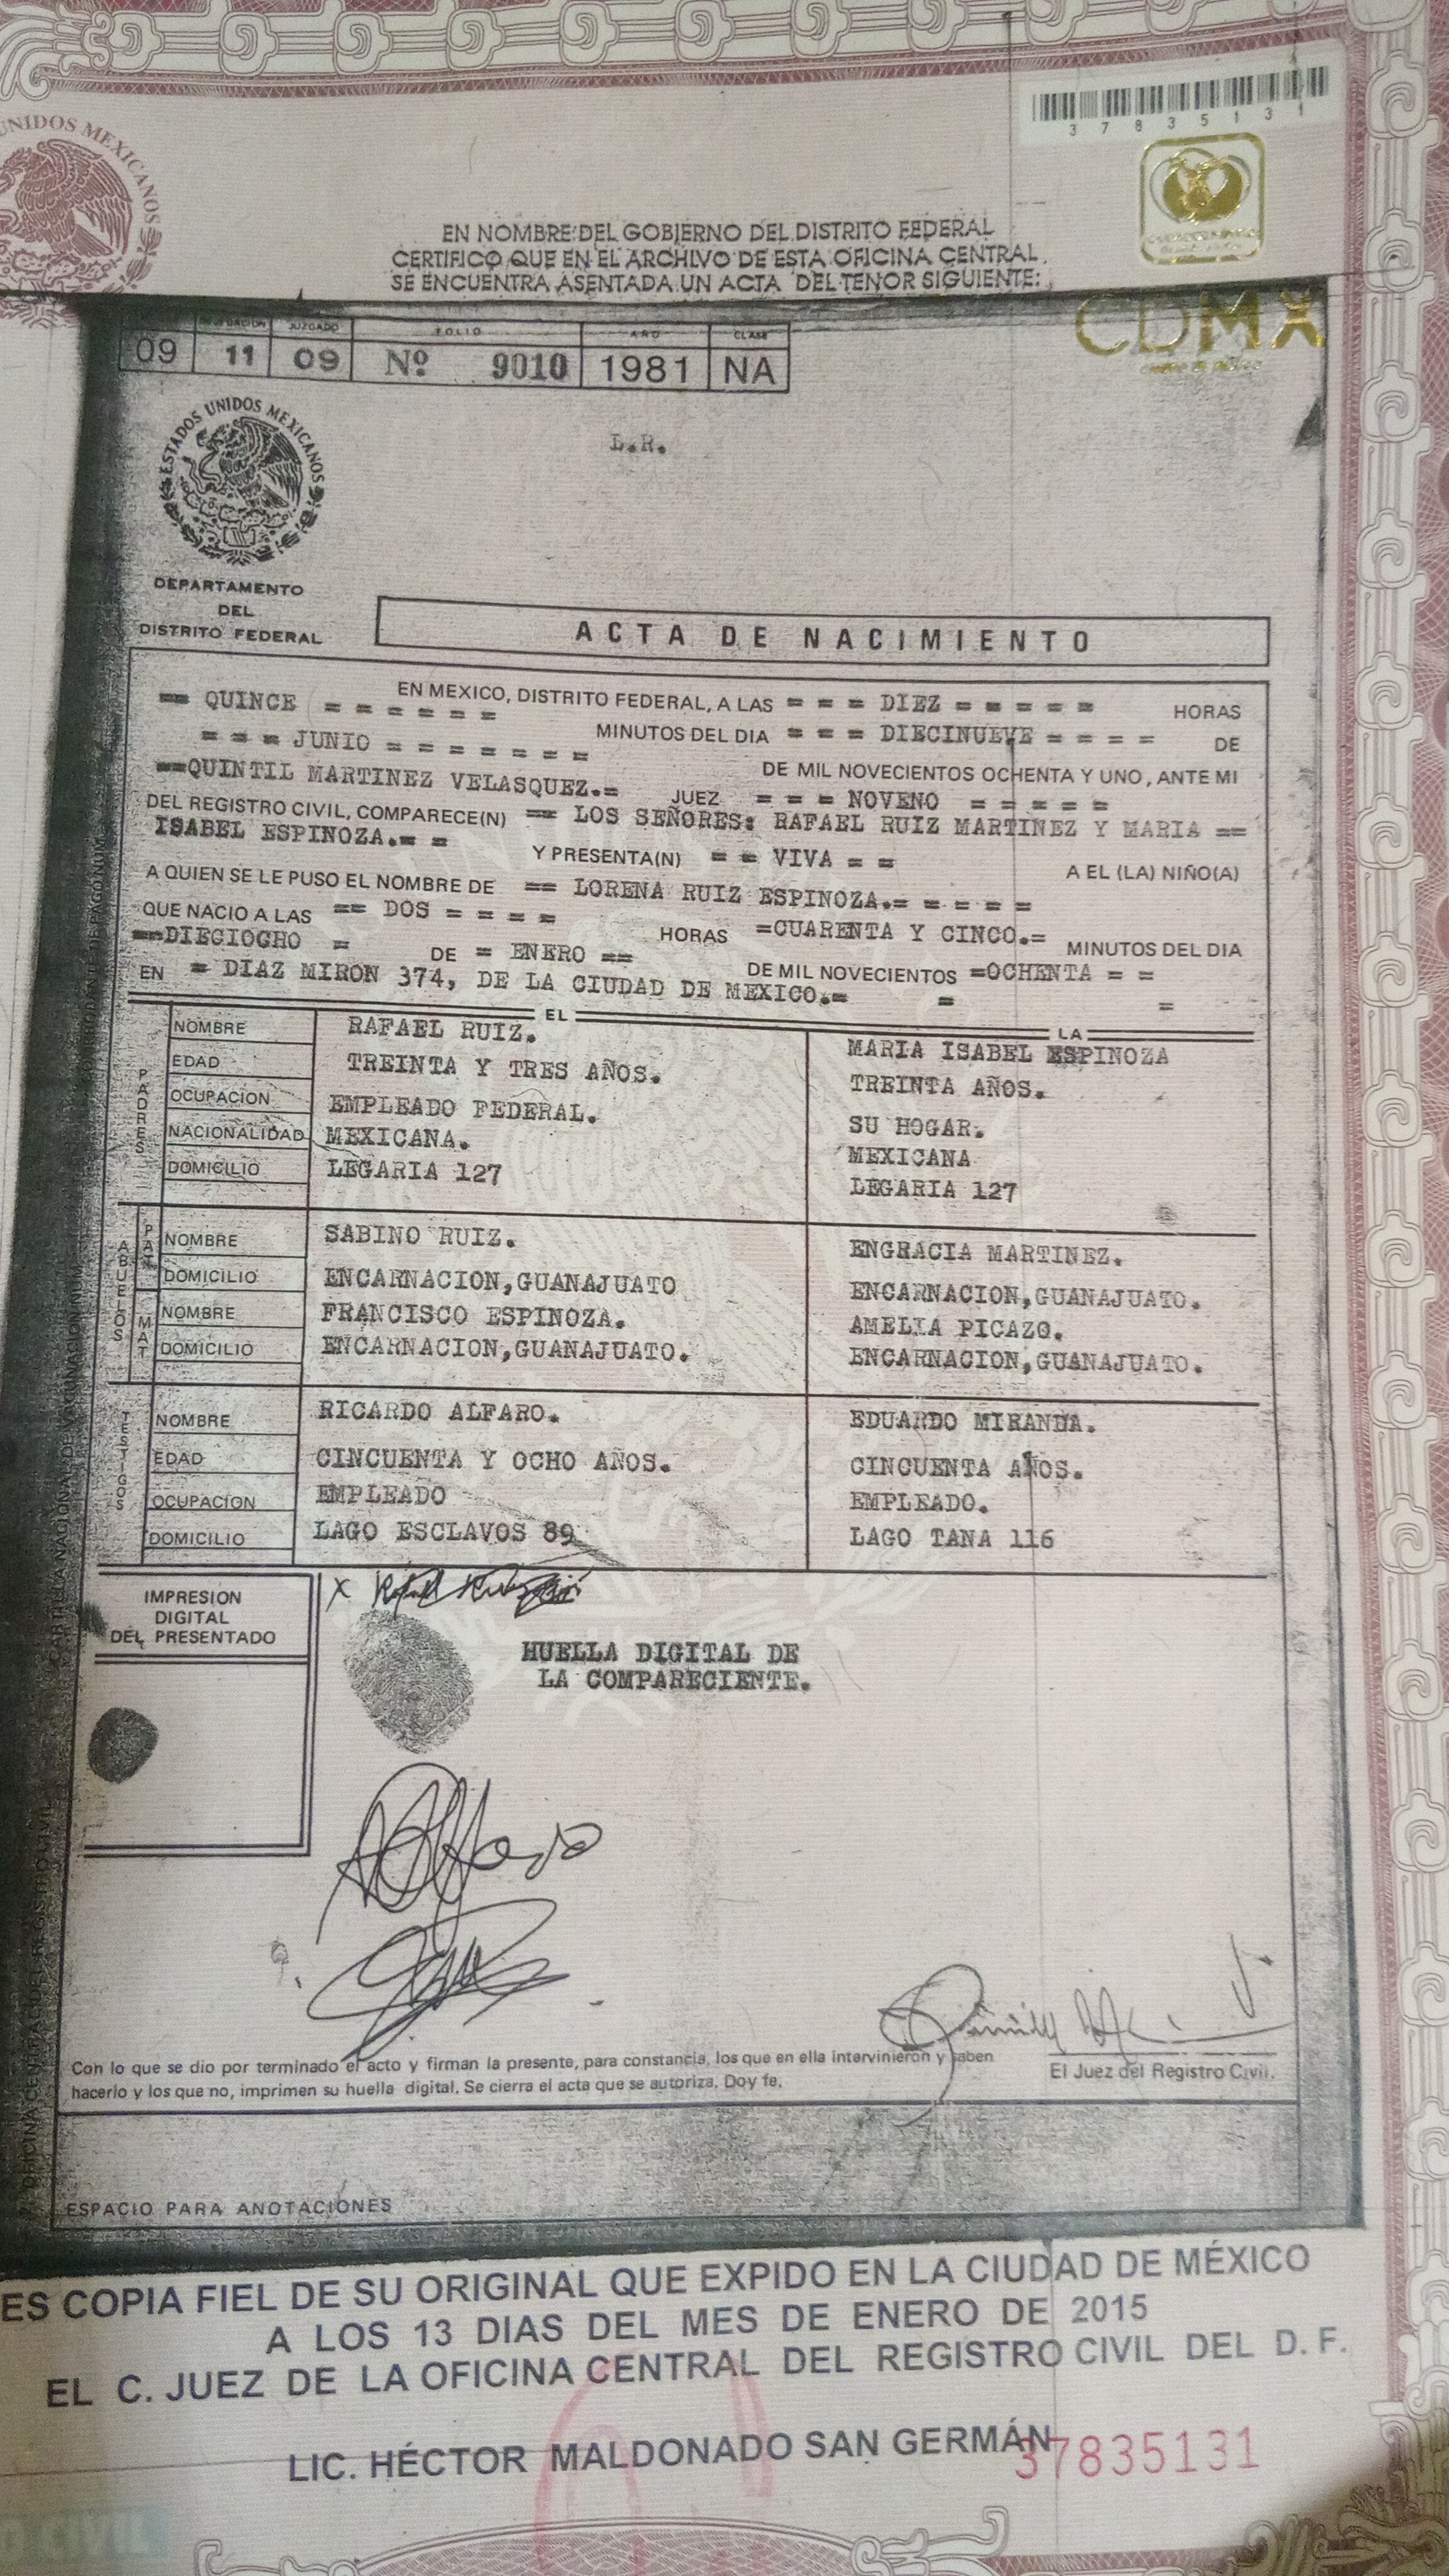 UNIDOS MEXICANOS
3 7 8 3 5 1 3 1
EN NOMBRE DEL GOBIERNO DEL DISTRITO FEDERAL
CERTIFICO QUE EN EL ARCHIVO DE ESTA OFICINA CENTRAL
SE ENCUENTRA ASENTADA UN ACTA DEL TENOR SIGUIENTE:
CDMX
CIUDAD DE MÉXICO
JUZGADO FOLIO AÑO CLASE
09 11 09 Nº 9010 1981 NA
L.R.
ESTADOS UNIDOS MEXICANOS
DEPARTAMENTO
DEL
DISTRITO FEDERAL
ACTA DE NACIMIENTO
EN MEXICO, DISTRITO FEDERAL, A LAS = = = DIEZ = = = = = HORAS
== QUINCE = = = = = = MINUTOS DEL DIA = = = DIECINUEVE = = = = DE
= = = JUNIO = = = = = = = DE MIL NOVECIENTOS OCHENTA Y UNO, ANTE MI
==QUINTIL MARTINEZ VELASQUEZ.= JUEZ = = = NOVENO = = = = =
DEL REGISTRO CIVIL, COMPARECE(N) == LOS SEÑORES: RAFAEL RUIZ MARTINEZ Y MARIA ==
ISABEL ESPINOZA.= = Y PRESENTA(N) = = VIVA = = A EL (LA) NIÑO(A)
A QUIEN SE LE PUSO EL NOMBRE DE == LORENA RUIZ ESPINOZA.= = = = =
QUE NACIO A LAS == DOS = = = = HORAS =CUARENTA Y CINCO.= MINUTOS DEL DIA
==DIECIOCHO = DE = ENERO == DE MIL NOVECIENTOS =OCHENTA = =
EN = DIAZ MIRON 374, DE LA CIUDAD DE MEXICO.= = =
EL LA
PADRES
NOMBRE RAFAEL RUIZ. MARIA ISABEL ESPINOZA
EDAD TREINTA Y TRES AÑOS. TREINTA AÑOS.
OCUPACION EMPLEADO FEDERAL. SU HOGAR.
NACIONALIDAD MEXICANA. MEXICANA
DOMICILIO LEGARIA 127 LEGARIA 127
ABUELOS
PAT.
NOMBRE SABINO RUIZ. ENGRACIA MARTINEZ.
DOMICILIO ENCARNACION,GUANAJUATO ENCARNACION,GUANAJUATO.
MAT
NOMBRE FRANCISCO ESPINOZA. AMELIA PICAZO.
DOMICILIO ENCARNACION,GUANAJUATO. ENCARNACION,GUANAJUATO.
TESTIGOS
NOMBRE RICARDO ALFARO. EDUARDO MIRANDA.
EDAD CINCUENTA Y OCHO AÑOS. CINCUENTA AÑOS.
OCUPACION EMPLEADO EMPLEADO.
DOMICILIO LAGO ESCLAVOS 89 LAGO TANA 116
IMPRESION
DIGITAL
DEL PRESENTADO
X
HUELLA DIGITAL DE
LA COMPARECIENTE.
Con lo que se dio por terminado el acto y firman la presente, para constancia, los que en ella intervinieron y saben
hacerlo y los que no, imprimen su huella digital. Se cierra el acta que se autoriza. Doy fe.
El Juez del Registro Civil.
ESPACIO PARA ANOTACIONES
ES COPIA FIEL DE SU ORIGINAL QUE EXPIDO EN LA CIUDAD DE MÉXICO
A LOS 13 DIAS DEL MES DE ENERO DE 2015
EL C. JUEZ DE LA OFICINA CENTRAL DEL REGISTRO CIVIL DEL D. F.
LIC. HÉCTOR MALDONADO SAN GERMÁN
37835131
CIVIL